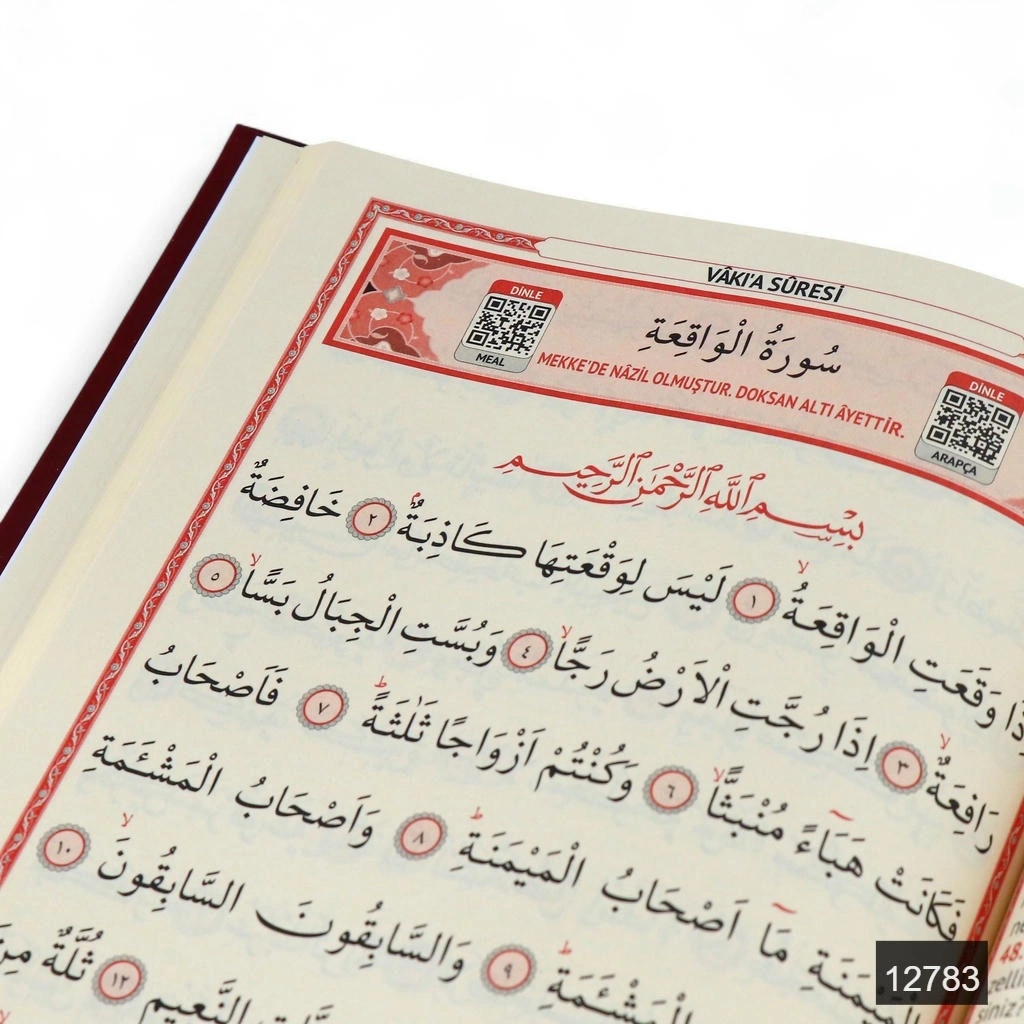 VÂKI'A SÛRESİ
DİNLE
MEAL
سُورَةُ الْوَاقِعَةِ
MEKKE'DE NÂZİL OLMUŞTUR. DOKSAN ALTI ÂYETTİR.
DİNLE
ARAPÇA
بِسْمِ اللّٰهِ الرَّحْمٰنِ الرَّحِيمِ
وَقَعَتِ الْوَاقِعَةُۙ ﴿١﴾ لَيْسَ لِوَقْعَتِهَا كَاذِبَةٌۢ ﴿٢﴾ خَافِضَةٌ
رَافِعَةٌۙ ﴿٣﴾ اِذَا رُجَّتِ الْاَرْضُ رَجًّاۙ ﴿٤﴾ وَبُسَّتِ الْجِبَالُ بَسًّاۙ ﴿٥﴾
فَكَانَتْ هَبَٓاءً مُنْبَثًّاۙ ﴿٦﴾ وَكُنْتُمْ اَزْوَاجًا ثَلٰثَةًۜ ﴿٧﴾ فَاَصْحَابُ
الْمَيْمَنَةِ مَٓا اَصْحَابُ الْمَيْمَنَةِۜ ﴿٨﴾ وَاَصْحَابُ الْمَشْـَٔمَةِ
الْمَشْـَٔمَةِۜ ﴿٩﴾ وَالسَّابِقُونَ السَّابِقُونَۙ ﴿١٠﴾
النَّعِيمِ ﴿١٢﴾ ثُلَّةٌ
48.
12783